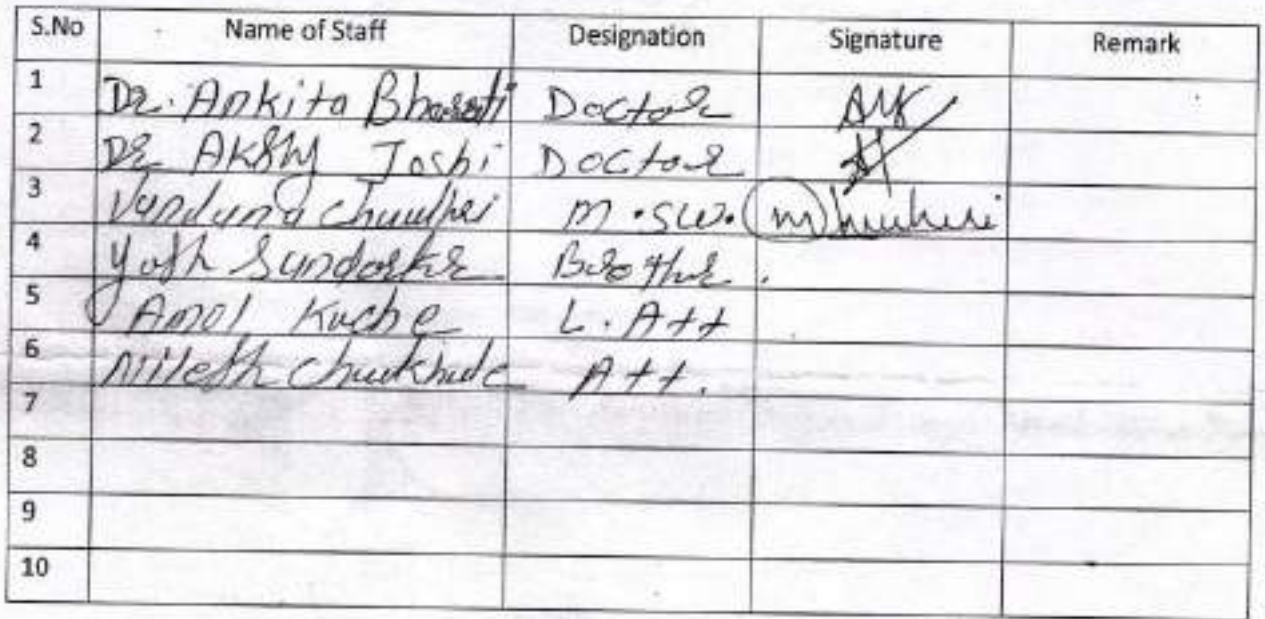 S.No Name of Staff Designation Signature Remark
1 Dr. Ankita Bharati Doctor
2 Dr Akshy Joshi Doctor
3 Vandana M.SW.
4 Yash Sundarkr Brother
5 Amol Kuche L. Att
6 Nilesh Att.
7
8
9
10